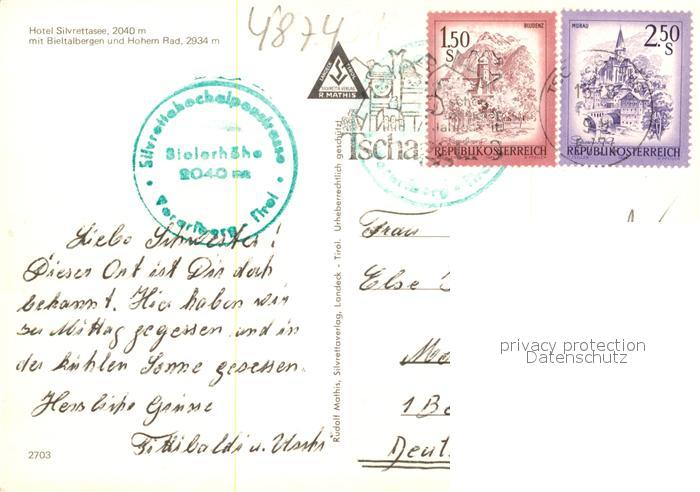 Hotel Silvrettasee, 2040 m
mit Bieltalbergen und Hohem Rad, 2934 m
4874
R. MATHIS
BLUDENZ
1.50
S
REPUBLIK ÖSTERREICH
MURAU
2.50
S
REPUBLIK ÖSTERREICH
Silvrettahochalpenstrasse
Bielerhöhe
2040 m
Vorarlberg - Tirol
Liebe Schwester!
Dieser Ort ist Dir doch
bekannt. Hier haben wir
zu Mittag gegessen und in
der kühlen Sonne gesessen.
Herzliche Grüsse
2703
Rudolf Mathis, Silvrettaverlag, Landeck - Tirol. Urheberrechtlich geschützt!
Frau
Else
1 Be
Deut
privacy protection
Datenschutz